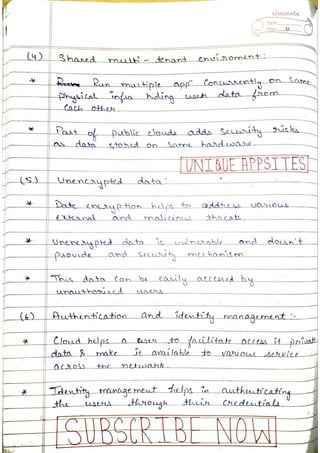 classmate
Date
Page 11
(4) Shared multi - tenant enviroment :
* Run multiple app" Concurrently on Same
physical infra hiding user data from
each other.
* Part of public clouds adds security risks
as data stored on same hardware.
UNIQUE APPSITES
(5) Unencrypted data :
* Date encryption helps to address various
external and malicious threats.
* Unencrypted data is vulnerable and doesn't
provide and security mechanism
* This data can be easily accessed by
unauthorized users.
(6) Authentication and identity management :-
* Cloud helps a user to facilitate access it private
data & make it available to various service
across the network.
* Identity management helps in authenticating
the users through their credentials.
SUBSCRIBE NOW